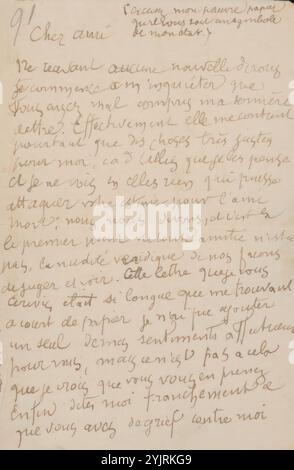 91
(Excusez mon pauvre papier
qu'il vous soit un symbole
de mon état.)
Cher ami
Ne recevant aucune nouvelle de vous
je commence à m'inquiéter que
vous ayez mal compris ma dernière
lettre. Effectivement elle ne contenait
pourtant que des choses très justes
pour moi, c à d telles que je les pense
et je ne vois en elles rien qui puisse
attaquer votre pour l'ami
mort, nous vivons, et c'est là
le premier amitié n'est
pas, la nudité véridique de nos façons
de juger et voir. Cette lettre que je vous
écrivis était si longue que me trouvant
à court de papier je n'ai pu ajouter
un seul de mes sentiments affectueux
pour vous, mais ce n'est pas à cela
que je crois que vous vous en preniez
Enfin dites moi franchement ce
que vous avez de grief contre moi
alamy
Image ID: 2YJRKG9
www.alamy.com